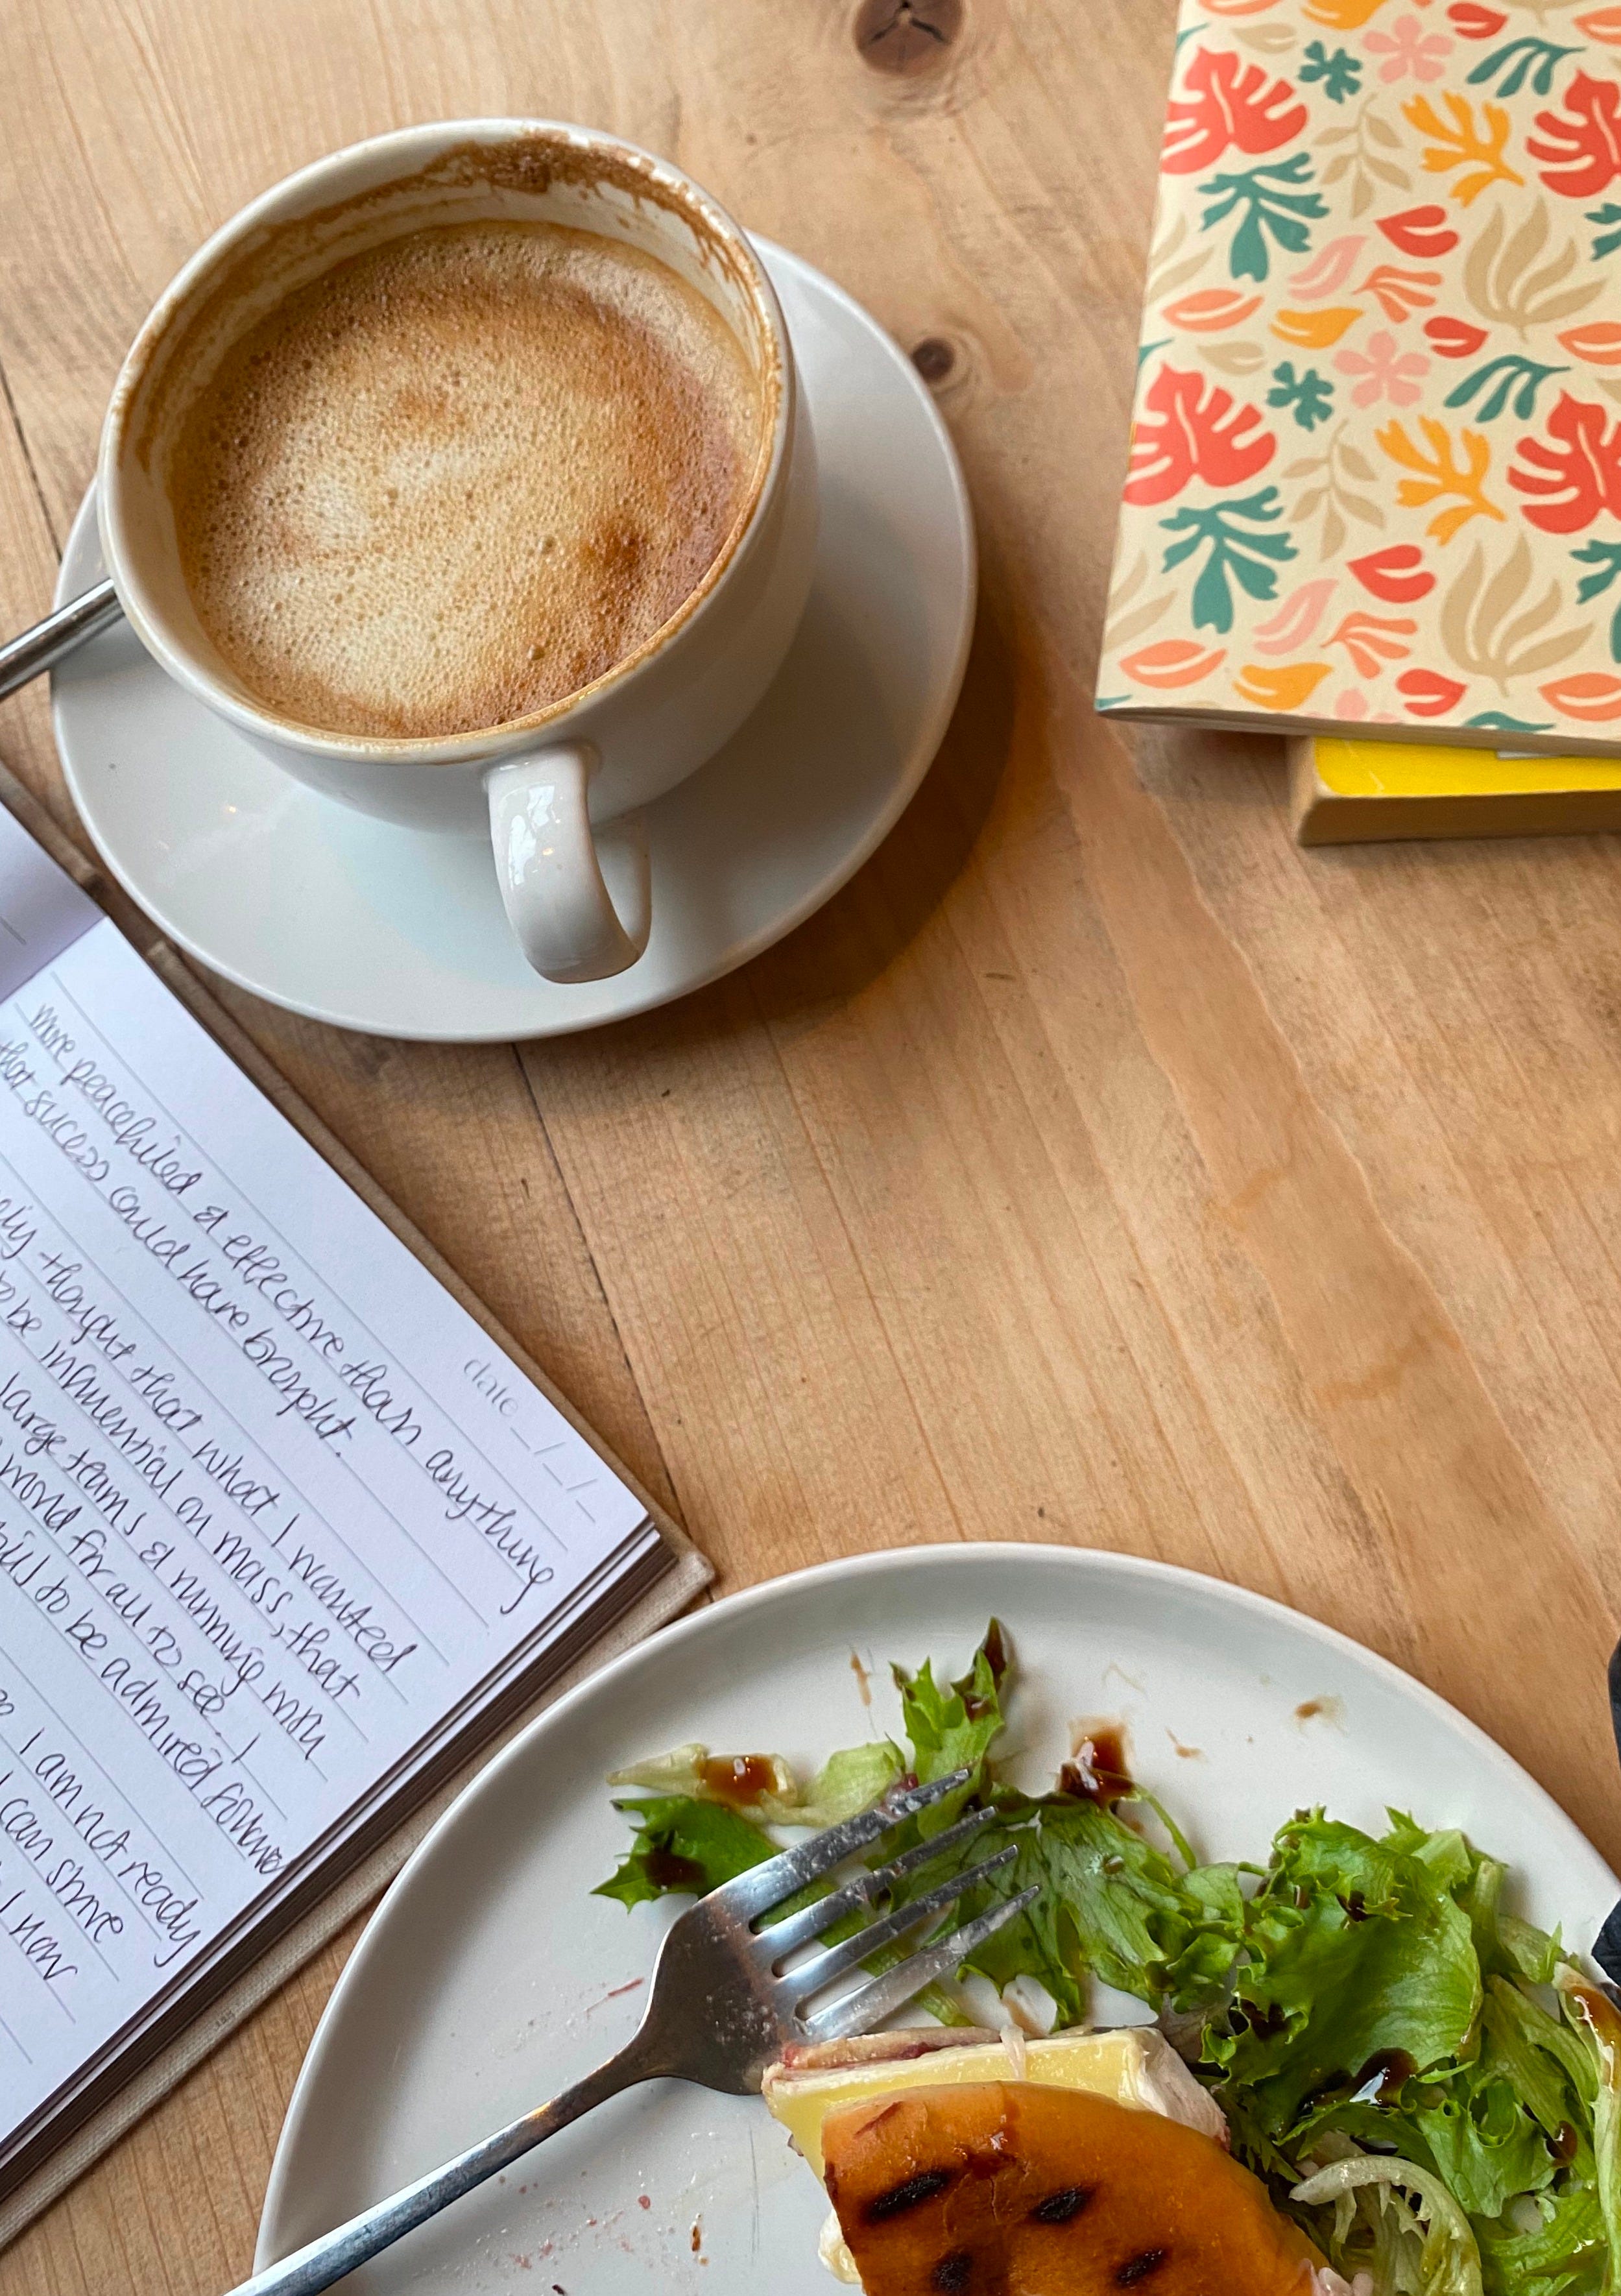 date _/_/_
more peacefuled & effective than anything
that sucess could have brought.
thought that what I wanted
to be influential on mass, that
large teams & running my
world for all to see. I
to be admired
I am not ready
can shine
I now